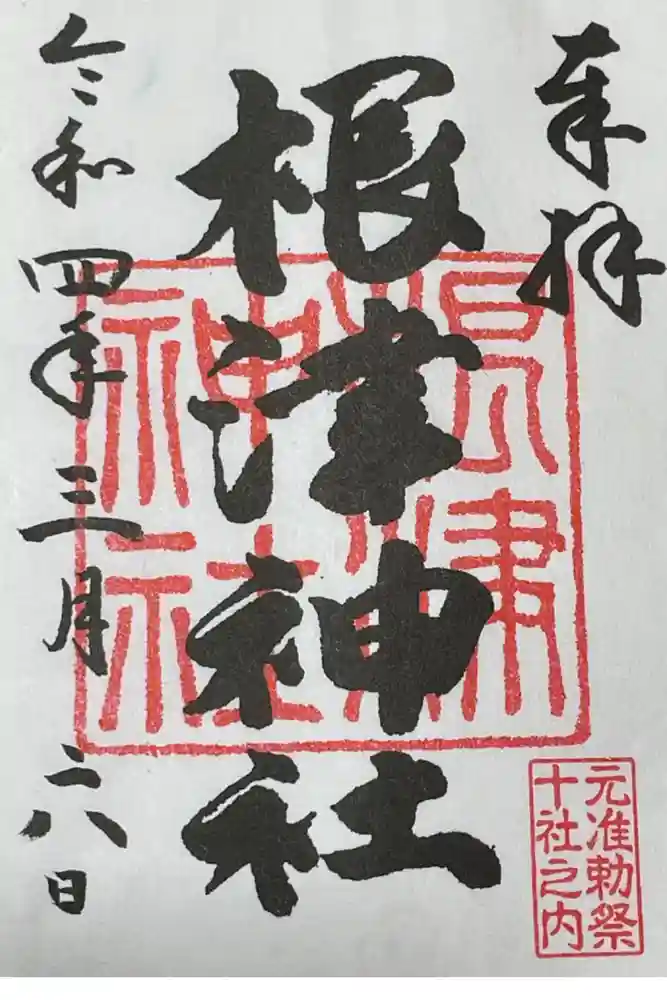 奉拝
根津神社
根津神社
元准勅祭
十社之内
令和四年三月六日